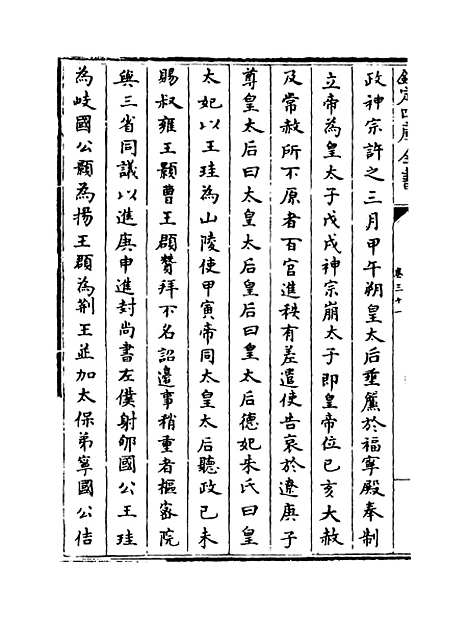 欽定四庫全書
卷三十一
政神宗許之三月甲午朔皇太后垂簾於福寧殿奉制
立帝為皇太子戊戌神宗崩太子即皇帝位己亥大赦
及常赦所不原者百官進秩有差遣使告哀於遼庚子
尊皇太后曰太皇太后皇后曰皇太后德妃朱氏曰皇
太妃以王珪為山陵使甲寅帝同太皇太后聽政己未
賜叔雍王顥曹王頵贊拜不名詔邊事稍重者樞密院
與三省同議以進庚申進封尚書左僕射郇國公王珪
為岐國公顥為揚王頵為荆王並加太保弟寧國公佶